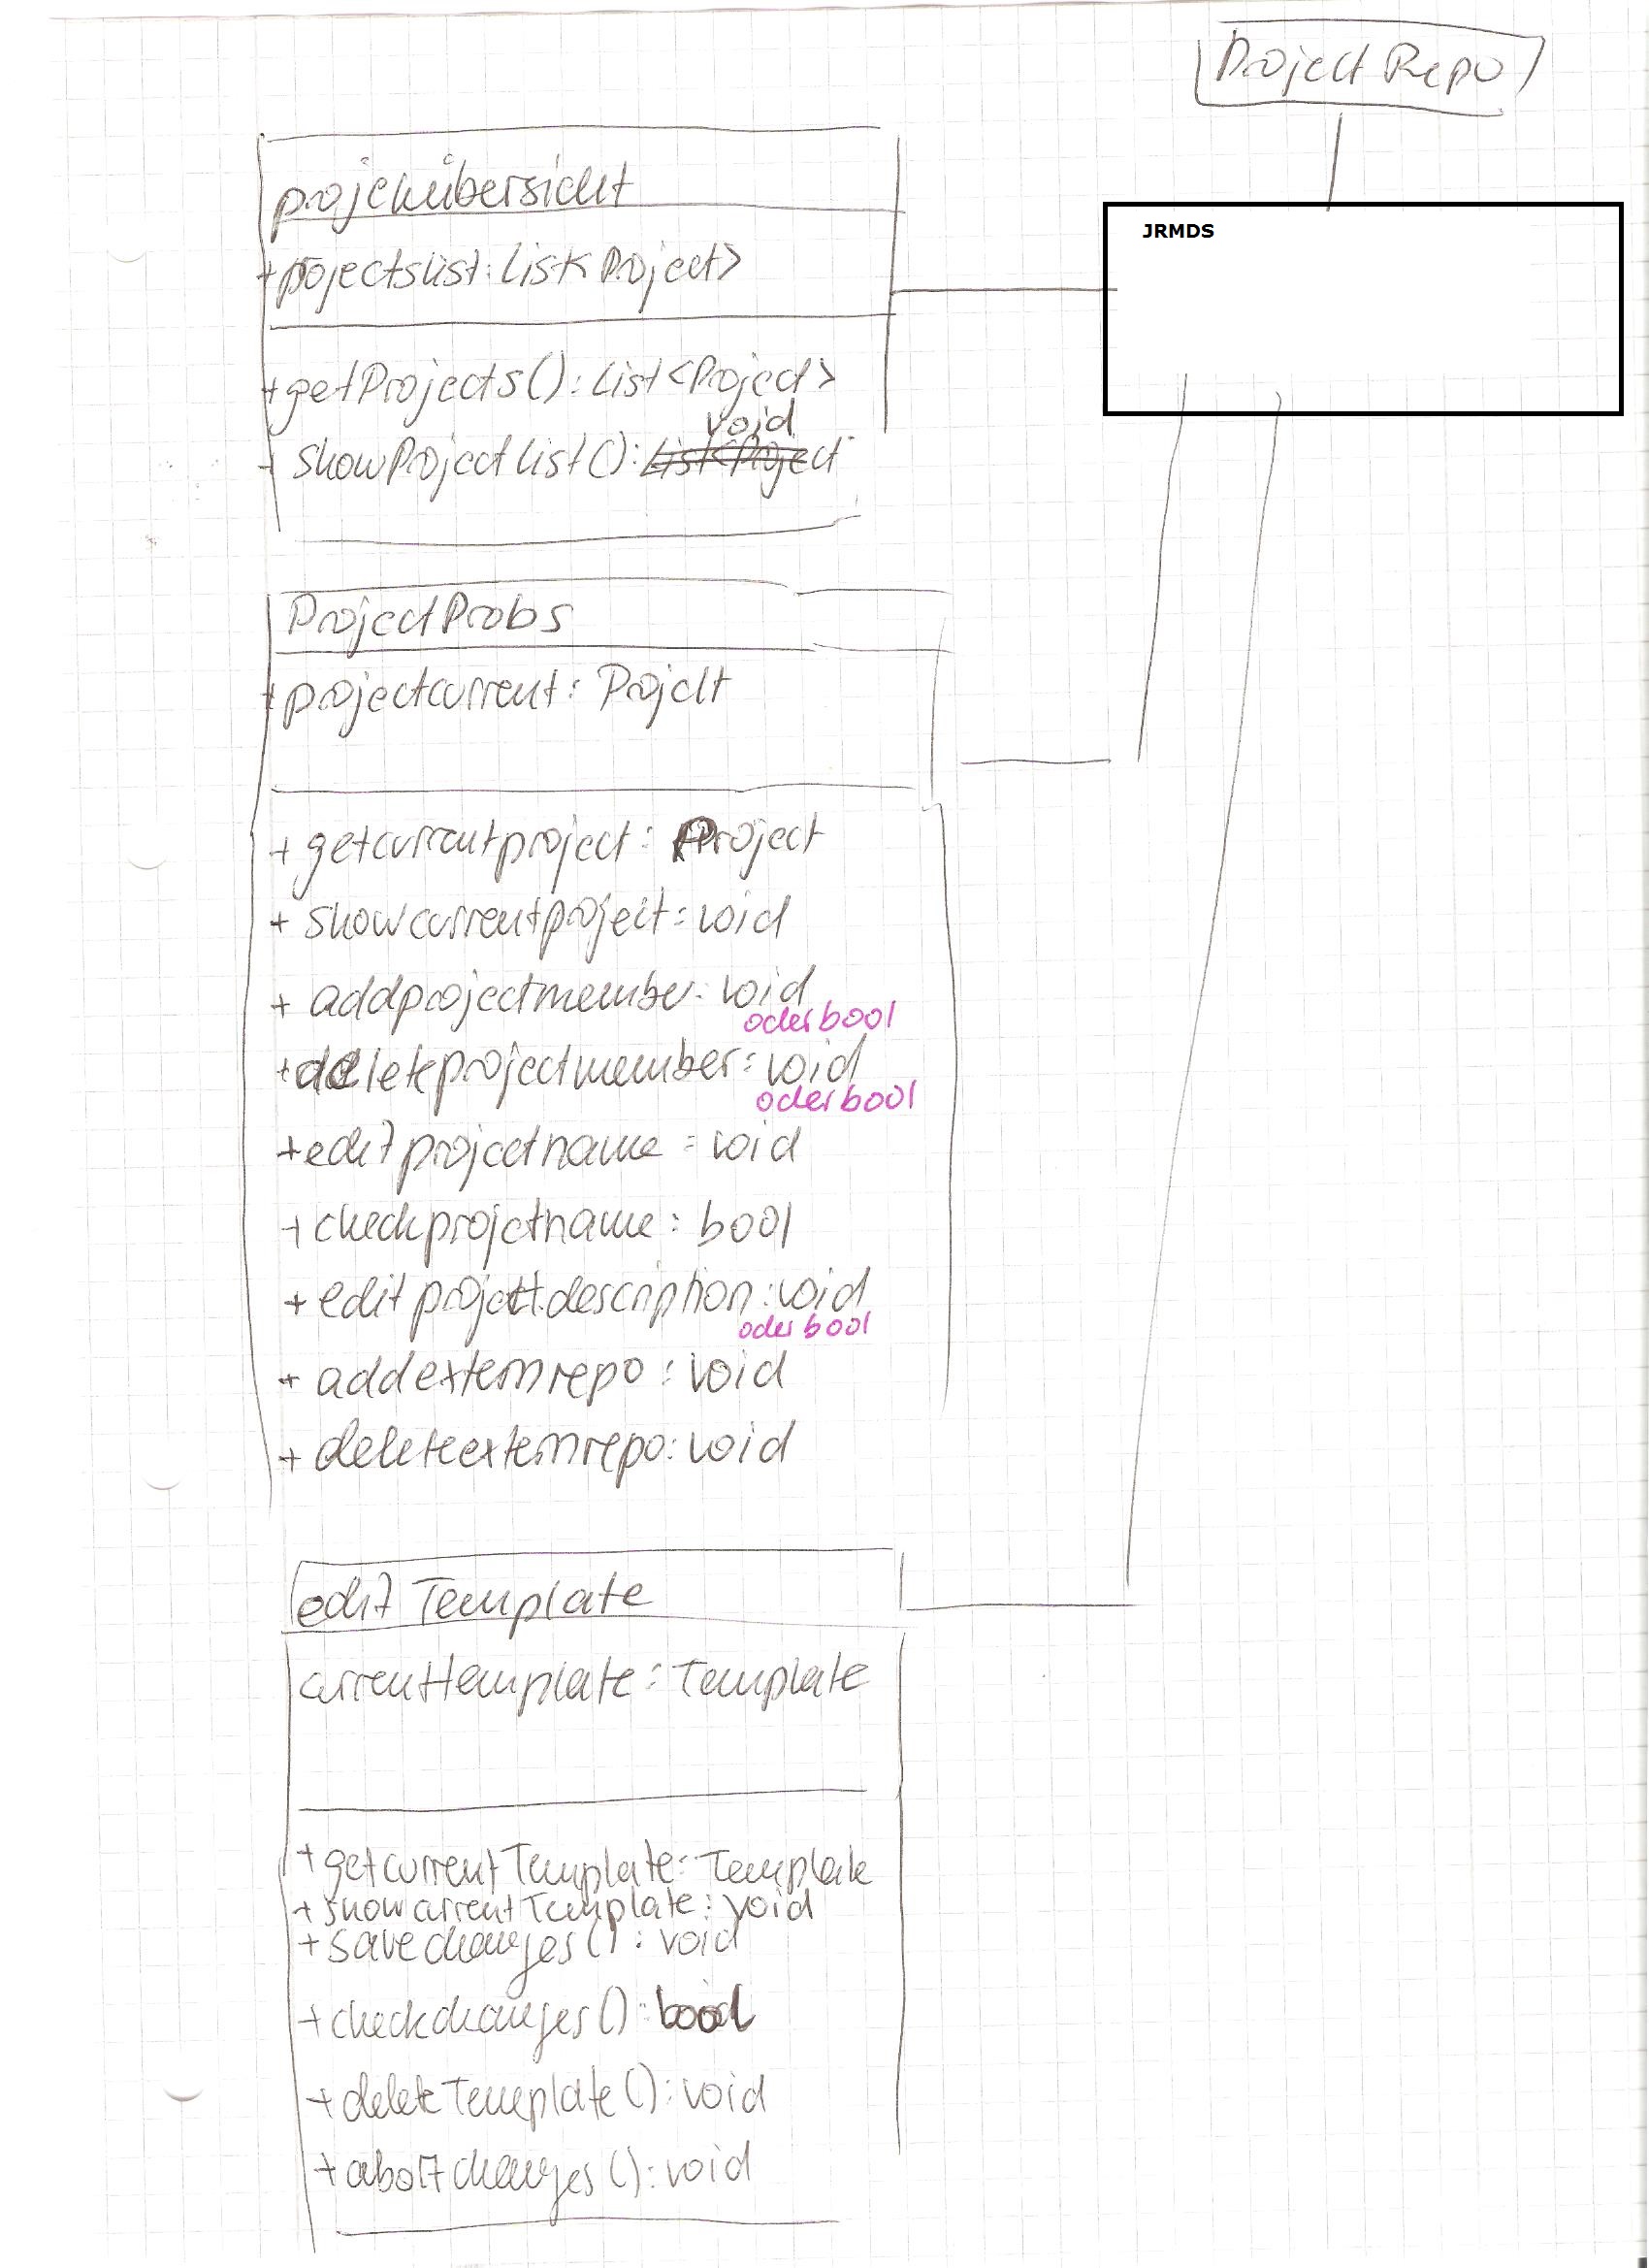 Project Repo
JRMDS
projektübersicht
+projectslist: List<Project>
+getProjects(): List<Project>
void
+ showProjectlist(): List<Project
ProjectProbs
+projectcurrent: Projekt
+ getcurrentproject: Project
+ showcurrentproject: void
+ addprojectmember: void
oder bool
+deleteprojectmember: void
oder bool
+edit projectname: void
+checkprojectname: bool
+ edit projectdescription: void
oder bool
+ addexternrepo: void
+ deleteexternrepo: void
edit Template
currenttemplate: Template
+getcurrentTemplate: Template
+showcurrentTemplate: void
+savechanges(): void
+checkchanges(): bool
+deleteTemplate(): void
+abortchanges(): void